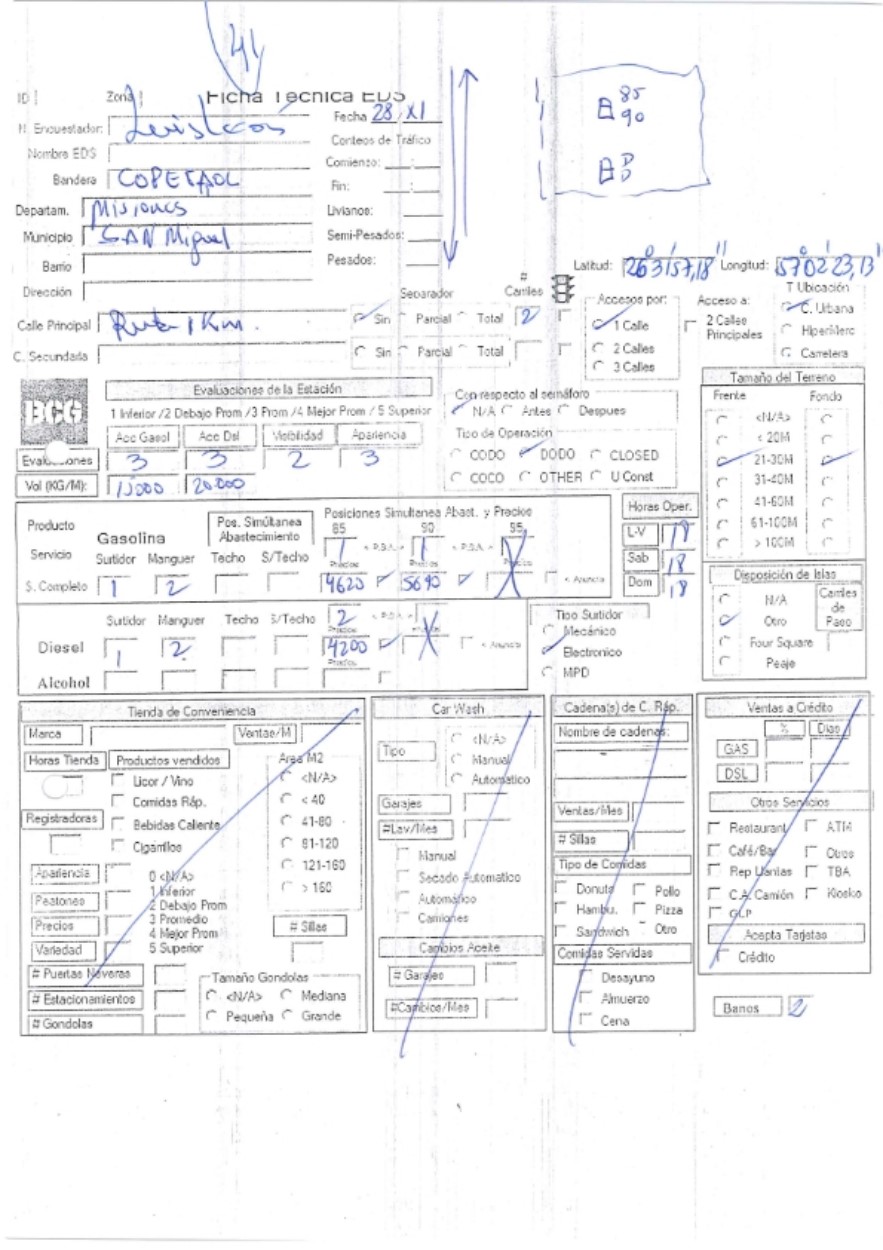 44
ID Zona Ficha Técnica EDS
85
90
D
N. Encuestador: Fecha 28 / XI
Conteos de Tráfico
Nombre EDS Comienzo: :
Bandera COPETROL Fin: :
Departam. Misiones Livianos:
Municipio SAN Miguel Semi-Pesados:
Barrio Pesados:
Latitud: 26°31'57,18" Longitud: 57°02'23,13"
Dirección
Separador # Carriles Accesos por: Acceso a: T Ubicación
Calle Principal Ruta 1 Km. Sin Parcial Total 2 1 Calle 2 Calles Principales C. Urbana
2 Calles HiperMerc
C. Secundaria Sin Parcial Total 3 Calles Carretera
BCG
Evaluaciones de la Estación
1 Inferior /2 Debajo Prom /3 Prom /4 Mejor Prom / 5 Superior
Acc Gasol Acc Dsl Visibilidad Apariencia
Evaluaciones 3 3 2 3
Vol (KG/M): 15000 20000
Con respecto al semáforo
N/A Antes Despues
Tipo de Operación
CODO DODO CLOSED
COCO OTHER U Const
Tamaño del Terreno
Frente Fondo
<N/A>
< 20M
21-30M
31-40M
41-60M
61-100M
> 100M
Producto Gasolina Pos. Simúltanea Abastecimiento Posiciones Simultanea Abast. y Precios
85 90 95
Servicio Surtidor Manguer Techo S/Techo 1 < P.S.A. > 1 < P.S.A. > X
Precios Precios Precios
S. Completo 1 2 4620 5690 < Anuncia
Horas Oper.
L-V 18
Sab 18
Dom 18
Surtidor Manguer Techo S/Techo 2 < P.S.A. > X
Precios
Diesel 1 2 4200 < Anuncia
Precios
Alcohol
Tipo Surtidor
Mecánico
Electronico
MPD
Disposición de Islas
N/A Carriles de Paso
Otro
Four Square
Peaje
Tienda de Conveniencia
Marca Ventas/M
Horas Tienda Productos vendidos Area M2
Licor / Vino <N/A>
Comidas Ráp. < 40
Registradoras Bebidas Caliente 41-80
Cigarrillos 81-120
121-160
> 160
Apariencia 0 <N/A>
1 Inferior
Peatones 2 Debajo Prom
Precios 3 Promedio
4 Mejor Prom # Sillas
Variedad 5 Superior
# Puertas Neveras Tamaño Gondolas
# Estacionamientos <N/A> Mediana
# Gondolas Pequeña Grande
Car Wash
Tipo <N/A>
Manual
Automatico
Garajes
#Lav/Mes
Manual
Secado Automatico
Automatico
Camiones
Cambios Aceite
# Garajes
#Cambios/Mes
Cadena(s) de C. Ráp.
Nombre de cadenas:
Ventas/Mes
# Sillas
Tipo de Comidas
Donuts Pollo
Hambu. Pizza
Sandwich Otro
Comidas Servidas
Desayuno
Almuerzo
Cena
Ventas a Crédito
% Dias
GAS
DSL
Otros Servicios
Restaurant ATM
Café/Bar Otros
Rep Llantas TBA
C.A. Camión Kiosko
GLP
Acepta Tarjetas
Crédito
Banos 2